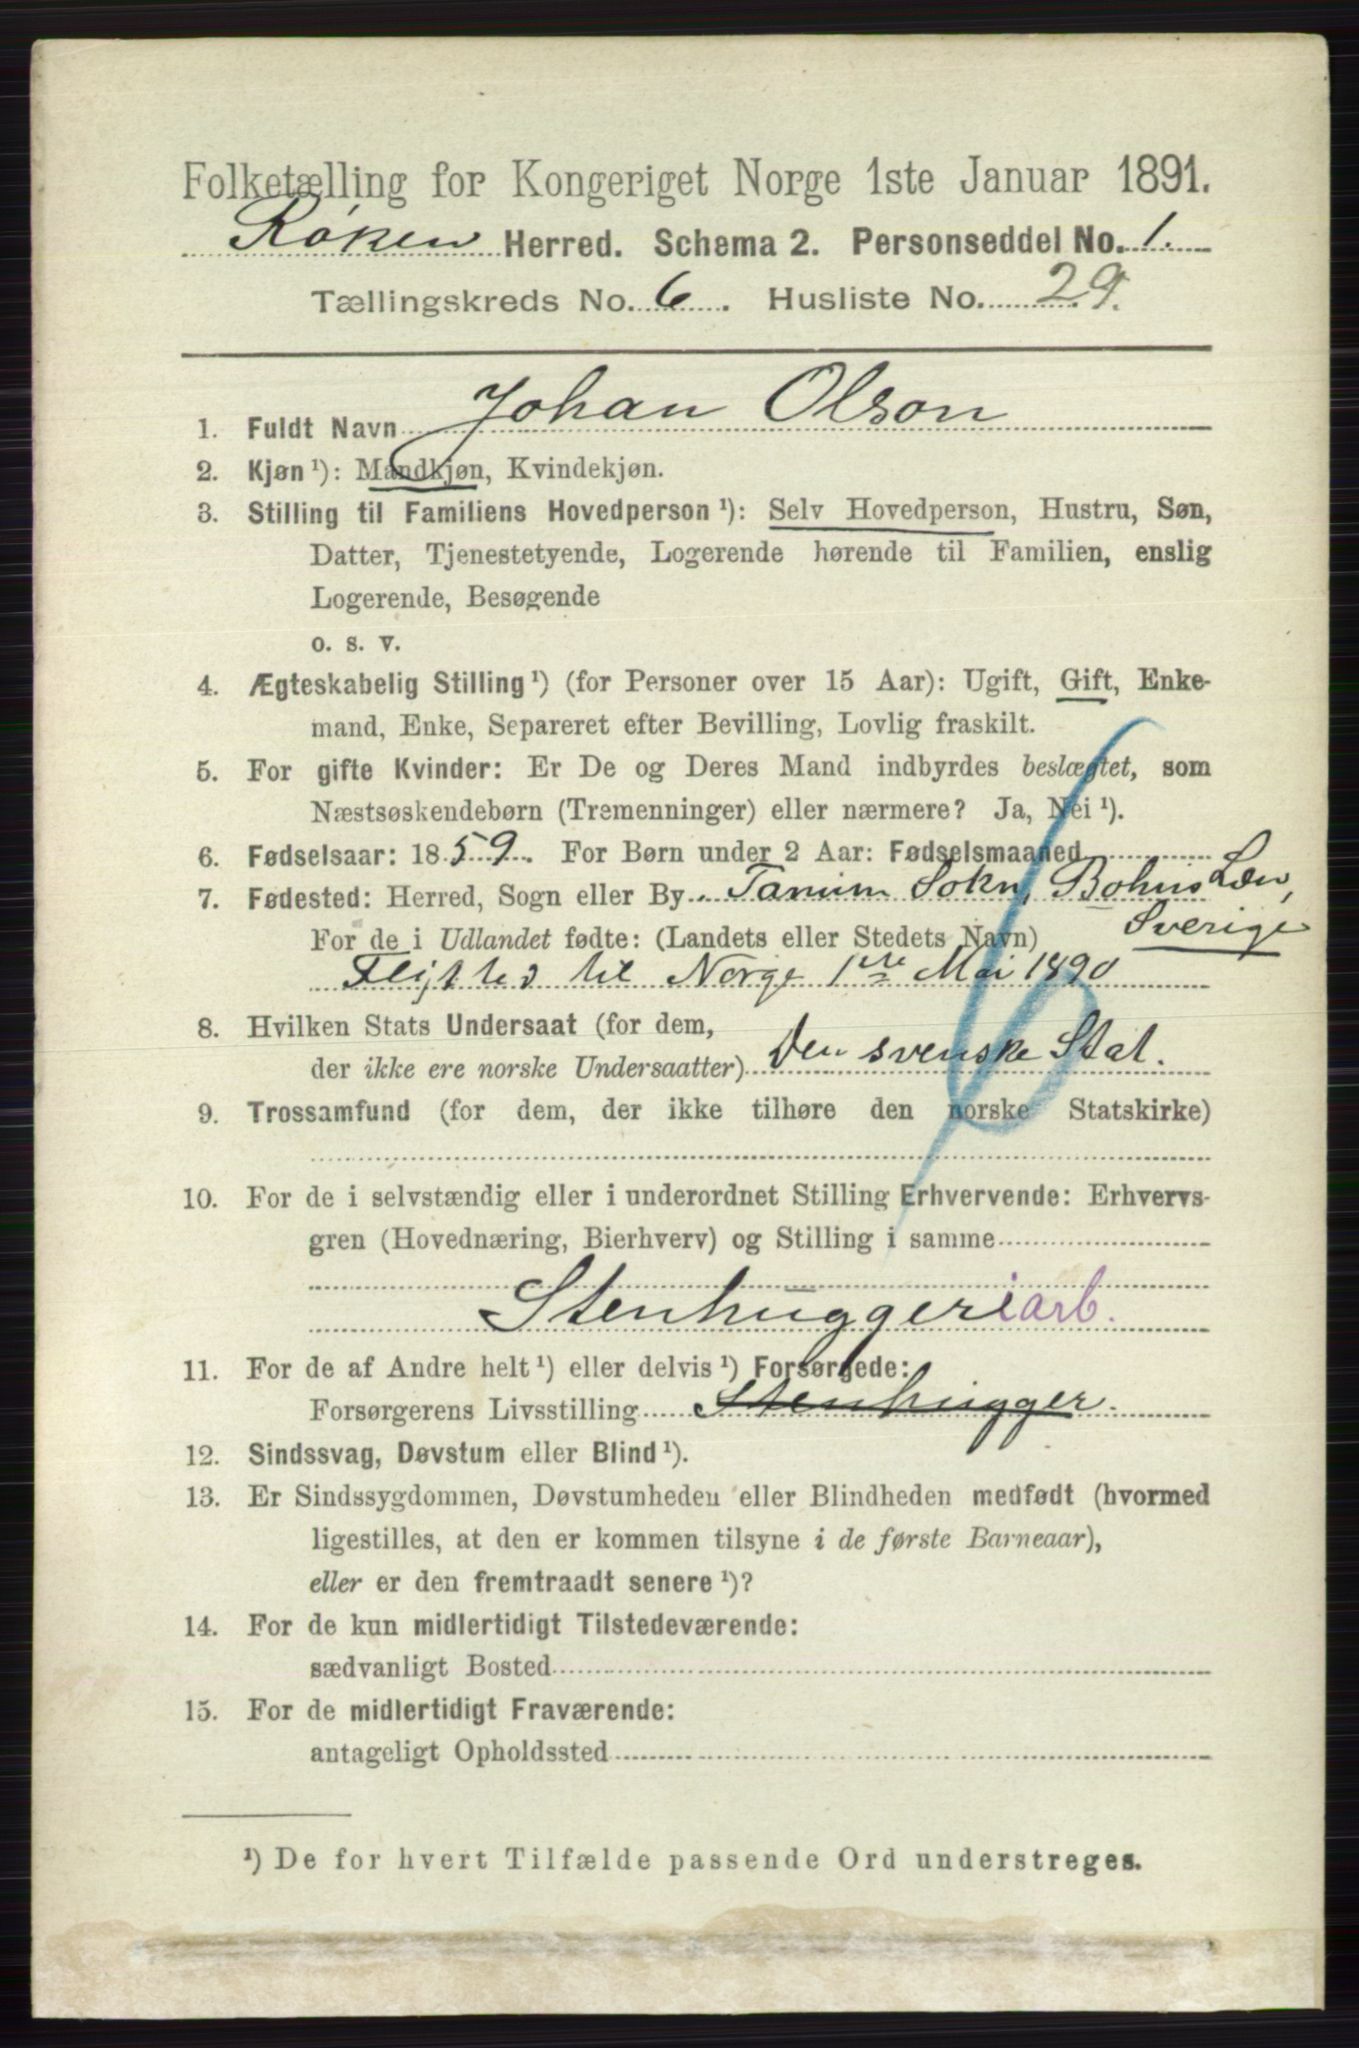 Folketælling for Kongeriget Norge 1ste Januar 1891.
Røken Herred. Schema 2. Personseddel No. 1.
Tællingskreds No. 6. Husliste No. 29.
1. Fuldt Navn Johan Olson
2. Kjøn ¹): Mandkjøn, Kvindekjøn.
3. Stilling til Familiens Hovedperson ¹): Selv Hovedperson, Hustru, Søn,
Datter, Tjenestetyende, Logerende hørende til Familien, enslig
Logerende, Besøgende
o. s. v.
4. Ægteskabelig Stilling ¹) (for Personer over 15 Aar): Ugift, Gift, Enke-
mand, Enke, Separeret efter Bevilling, Lovlig fraskilt.
5. For gifte Kvinder: Er De og Deres Mand indbyrdes beslægtet, som
Næstsøskendebørn (Tremenninger) eller nærmere? Ja, Nei ¹).
6. Fødselsaar: 1859. For Børn under 2 Aar: Fødselsmaaned
7. Fødested: Herred, Sogn eller By Tanum Sokn, Bohus Len,
For de i Udlandet fødte: (Landets eller Stedets Navn) Sverige
Flytted til Norge 1ste Mai 1890
8. Hvilken Stats Undersaat (for dem,
der ikke ere norske Undersaatter) Den svenske Stat.
9. Trossamfund (for dem, der ikke tilhøre den norske Statskirke)
10. For de i selvstændig eller i underordnet Stilling Erhvervende: Erhvervs-
gren (Hovednæring, Bierhverv) og Stilling i samme
Stenhuggeriarb.
11. For de af Andre helt ¹) eller delvis ¹) Forsørgede:
Forsørgerens Livsstilling Stenhugger.
12. Sindssvag, Døvstum eller Blind ¹).
13. Er Sindssygdommen, Døvstumheden eller Blindheden medfødt (hvormed
ligestilles, at den er kommen tilsyne i de første Barneaar),
eller er den fremtraadt senere ¹)?
14. For de kun midlertidigt Tilstedeværende:
sædvanligt Bosted
15. For de midlertidigt Fraværende:
antageligt Opholdssted
¹) De for hvert Tilfælde passende Ord understreges.